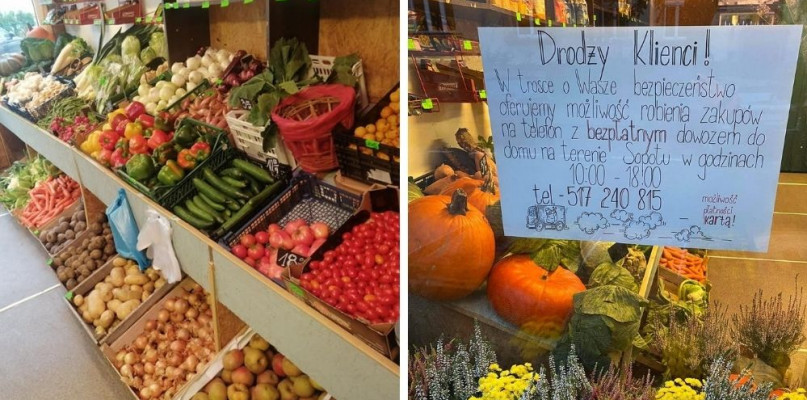 Drodzy Klienci!
W trosce o Wasze bezpieczeństwo
oferujemy możliwość robienia zakupów
na telefon z bezpłatnym dowozem do
domu na terenie Sopotu w godzinach
10:00 - 18:00
tel.- 517 240 815
możliwość
płatności
kartą!
18